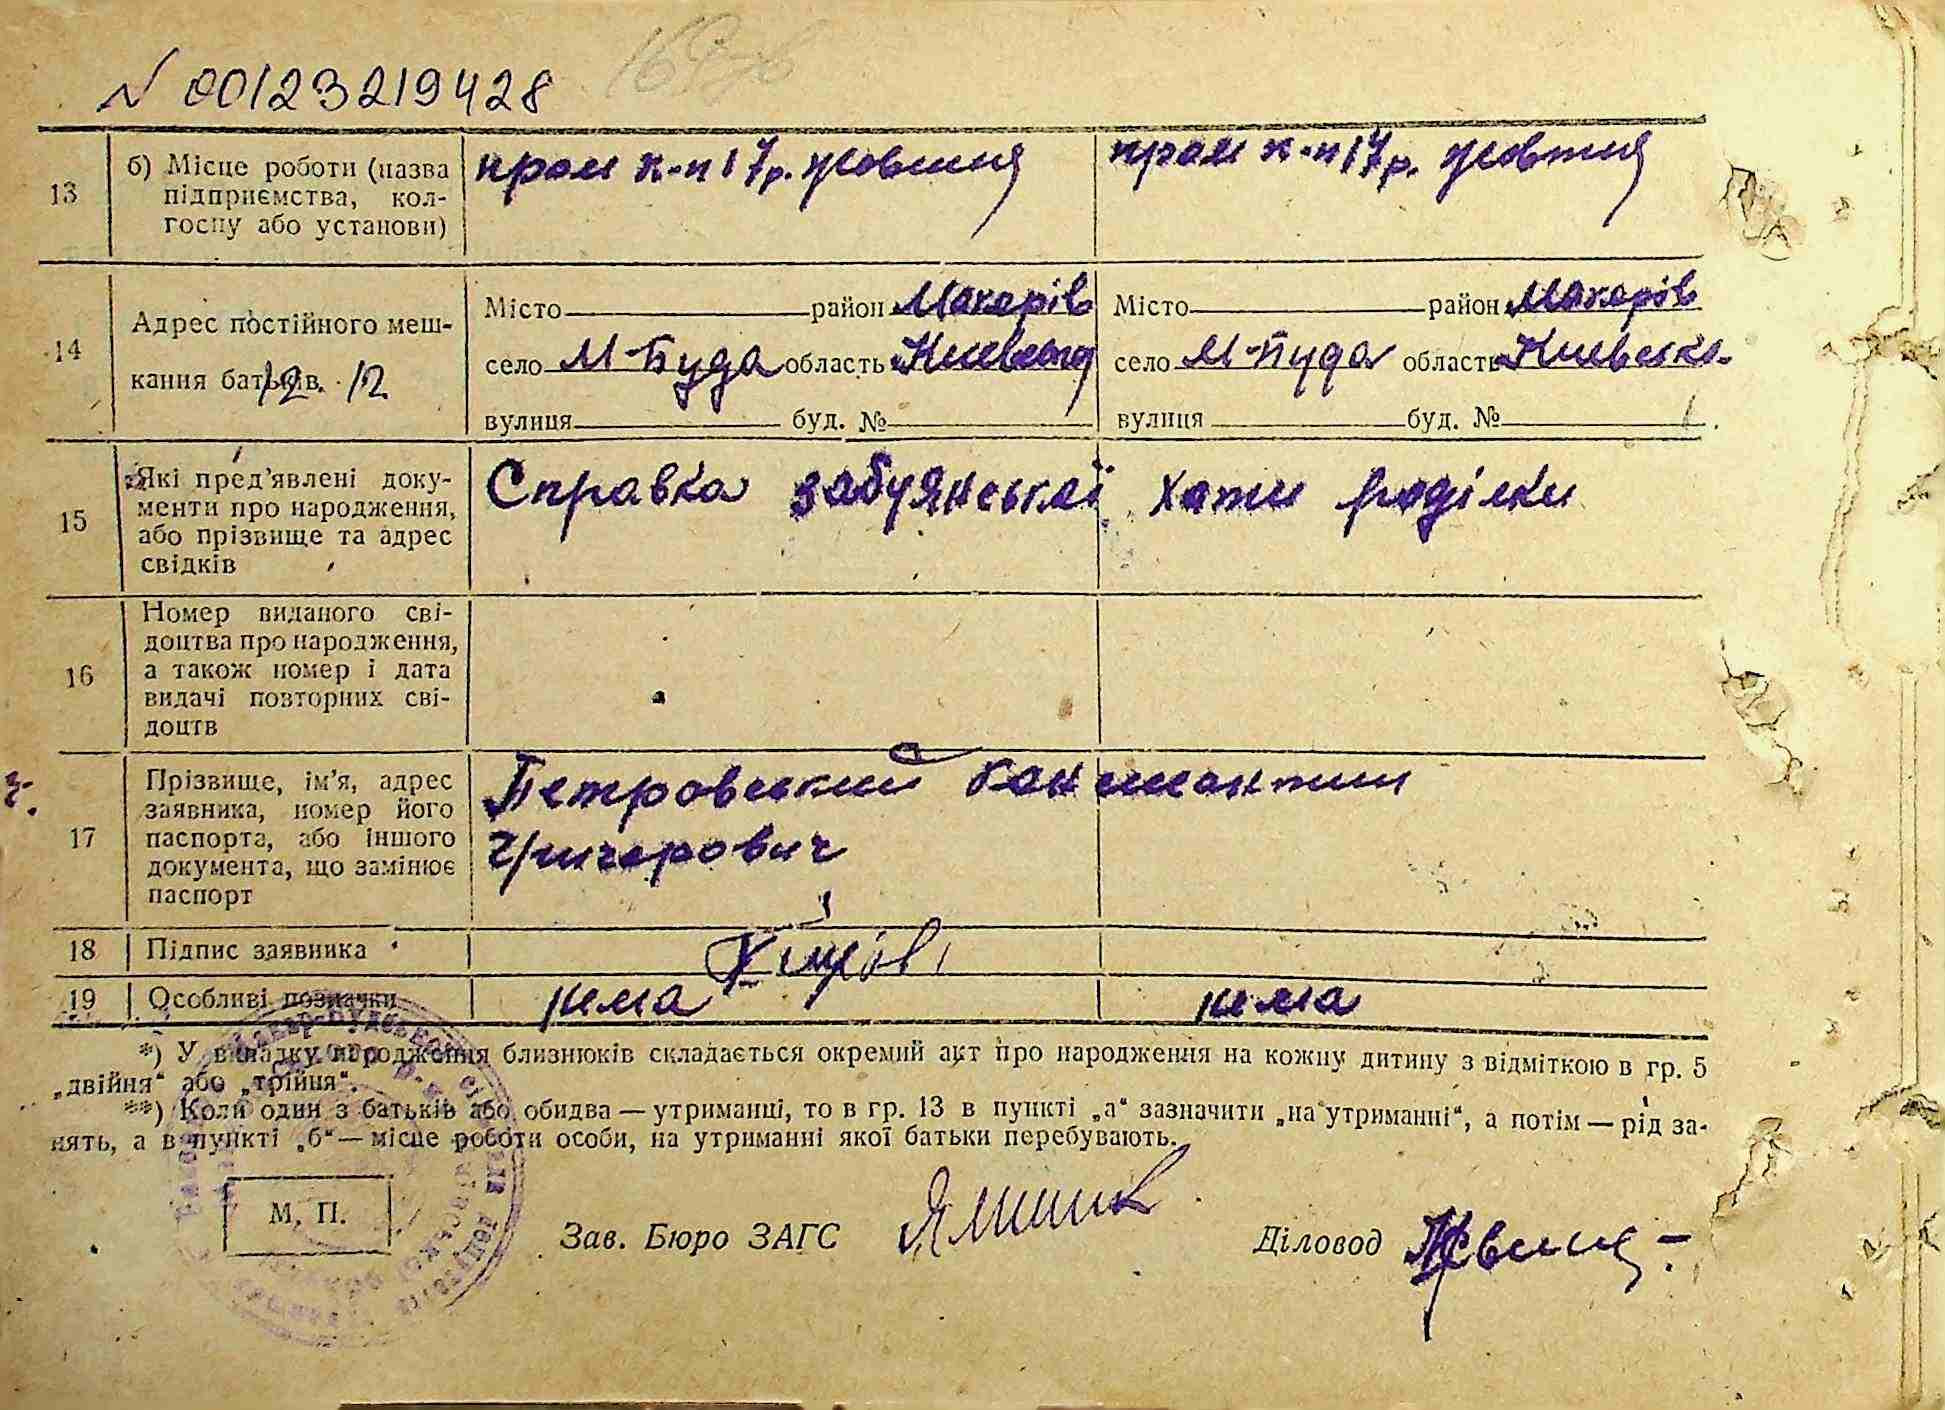 N 00123219428
13
б) Місце роботи (назва
підприємства, кол-
госпу або установи)
пром к-п 17 р. жовтня
пром к-п 17 р. жовтня
14
Адрес постійного меш-
кання батьків. 12
Місто район Макарів
село М-Буда область Київська
вулиця буд. №
Місто район Макарів
село М-Буда область Київська
вулиця буд. №
15
Які пред'явлені доку-
менти про народження,
або прізвище та адрес
свідків
Справка забуянської хати роділки
16
Номер виданого сві-
доцтва про народження,
а також номер і дата
видачі повторних сві-
доцтв
17
Прізвище, ім'я, адрес
заявника, номер його
паспорта, або іншого
документа, що замінює
паспорт
Петровський Константин
Григорович
18
Підпис заявника
19
Особливі позначки
нема
нема
*) У випадку народження близнюків складається окремий акт про народження на кожну дитину з відміткою в гр. 5
„двійня“ або „трійня“.
**) Коли один з батьків або обидва — утриманці, то в гр. 13 в пункті „а“ зазначити „на утриманні“, а потім — рід за-
нять, а в пункті „б“ — місце роботи особи, на утриманні якої батьки перебувають.
М. П.
Зав. Бюро ЗАГС
Діловод